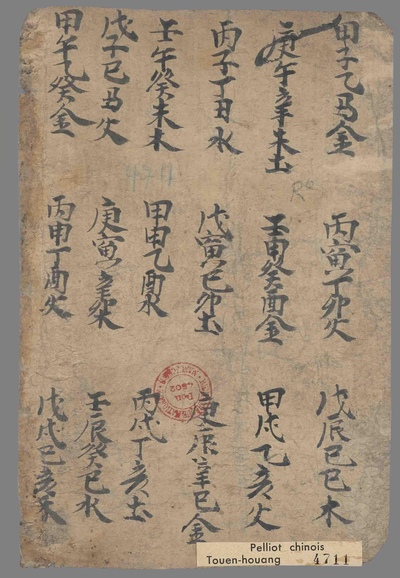 甲子乙丑金 丙寅丁卯火 戊辰己巳木
庚午辛未土 壬申癸酉金 甲戌乙亥火
丙子丁丑水 戊寅己卯土 庚辰辛巳金
壬午癸未木 甲申乙酉水 丙戌丁亥土
戊子己丑火 庚寅辛卯木 壬辰癸巳水
甲午乙癸金 丙申丁酉火 戊戌己亥木
4711
R°
Don 4502
Pelliot chinois
Touen-houang 4711